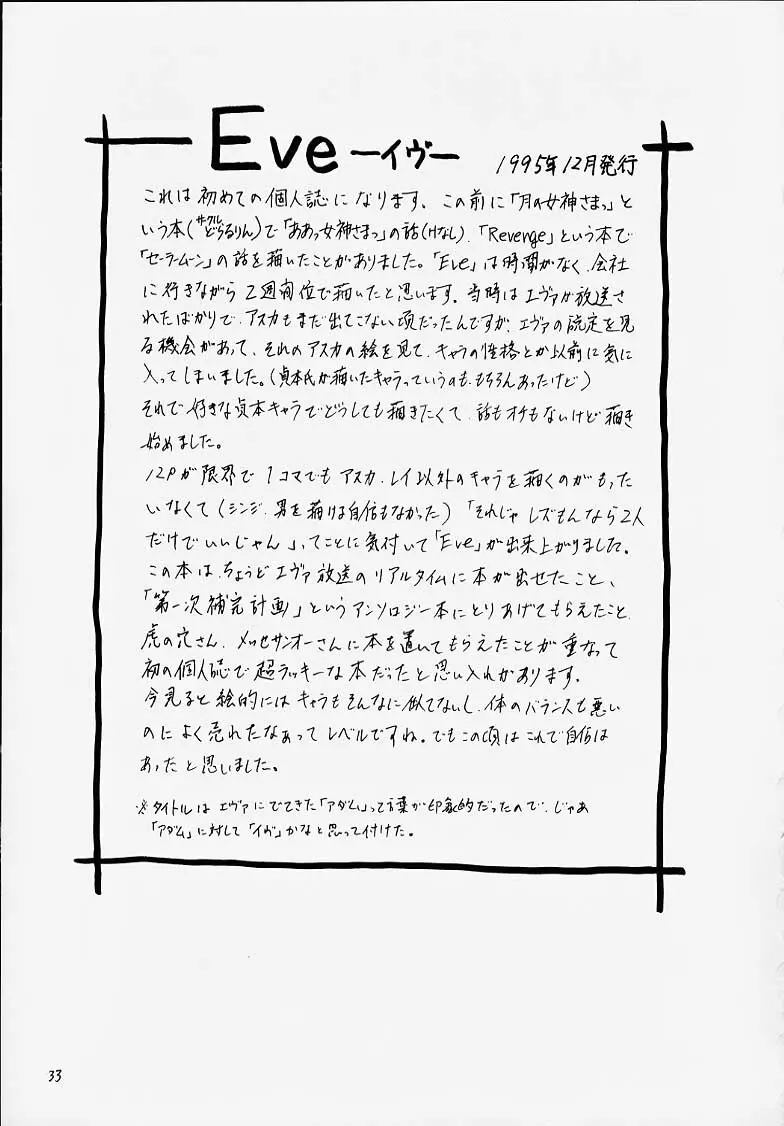 Eve ーイヴー 1995年12月発行
これは初めての個人誌になります、この前に「月の女神さまっ」と
いう本(サークルどらるりん)で「ああっ女神さまっ」の話(Hなし)、「Revenge」という本で
「セーラームーン」の話を描いたことがありました。「Eve」は時間がなく、会社
に行きながら2週間位で描いたと思います。当時はエヴァが放送さ
れたばかりで、アスカもまだ出てこない頃だったんですが、エヴァの設定を見
る機会があって、それのアスカの絵を見て、キャラの性格とか以前に気に
入ってしまいました。(貞本氏が描いたキャラっていうのも、もちろんあったけど)
それで好きな貞本キャラでどうしても描きたくて、話もオチもないけど描き
始めました。
12Pが限界で1コマでもアスカ、レイ以外のキャラを描くのがもった
いなくて(シンジ、男を描ける自信もなかった)「それじゃレズもんなら2人
だけでいいじゃん」ってことに気付いて「Eve」が出来上がりました。
この本は、ちょうどエヴァ放送のリアルタイムに本が出せたこと、
「第一次補完計画」というアンソロジー本にとりあげてもらえたこと、
虎の穴さん、メッセサンオーさんに本を置いてもらえたことが重なって
初の個人誌で超ラッキーな本だったと思い入れがあります。
今見ると絵的にはキャラもそんなに似てないし、体のバランスも悪い
のによく売れたなぁってレベルですね。でもこの頃はこれで自信は
あったと思いました。
※タイトルはエヴァにでてきた「アダム」って言葉が印象的だったので、じゃあ
「アダム」に対して「イヴ」かなと思って付けた。
33